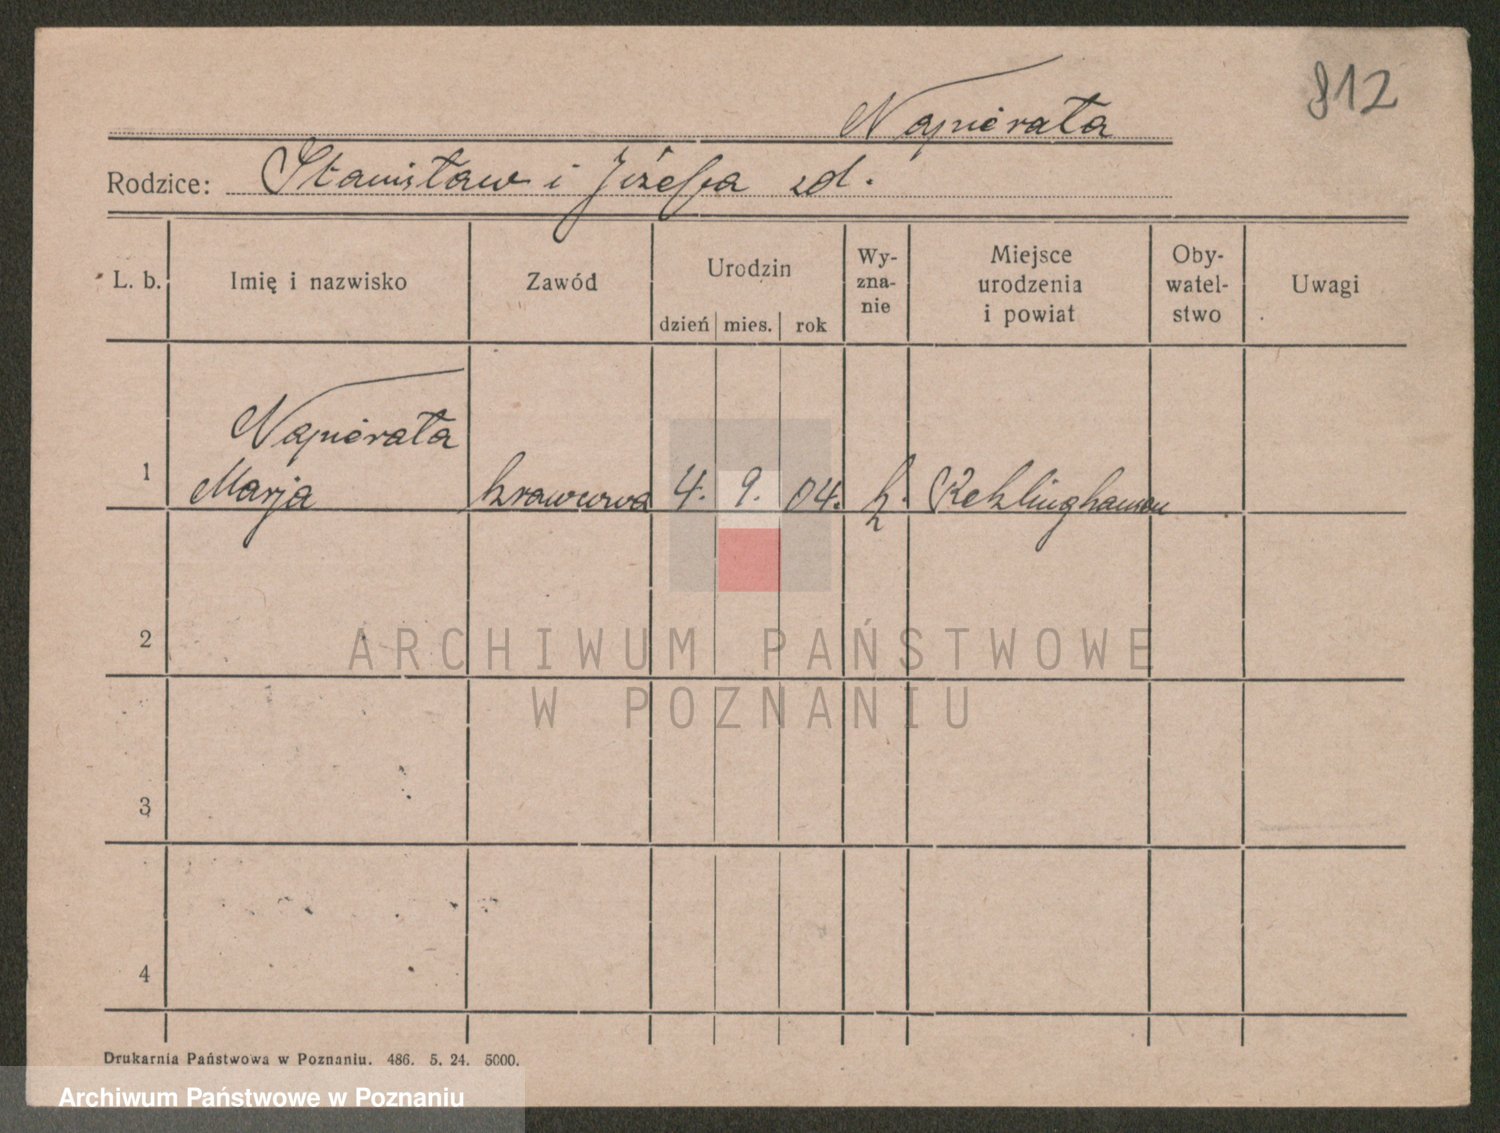 812
Napierała
Rodzice: Stanisław i Józefa zd.
L. b. Imię i nazwisko Zawód Urodzin dzień mies. rok Wy-zna-nie Miejsce urodzenia i powiat Oby-watel-stwo Uwagi
Napierała
1 Marja krawcowa 4. 9. 04. k. Reklinghausen
2
ARCHIWUM PAŃSTWOWE
W POZNANIU
3
4
Drukarnia Państwowa w Poznaniu. 486. 5. 24. 5000.
Archiwum Państwowe w Poznaniu